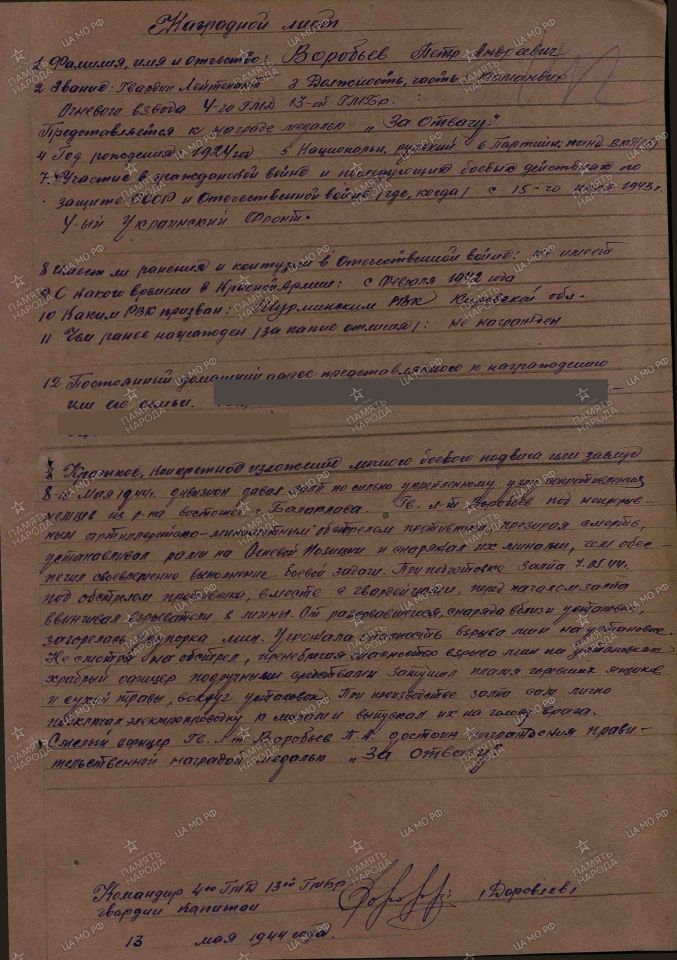 Наградной лист
1 Фамилия, имя и отчество: Воробьев Петр Андреевич
2 Звание: Гвардии Лейтенант 3 Должность, часть Командир
Огневого взвода 4-го ГМД 13-ой ГМБр.
Представляется к награде медалью "За Отвагу"
4 Год рождения 1924 год 5 Национальн. русский 6 Партийн: канд ВКП(б)
7. Участие в гражданской войне и последующих боевых действиях по
защите СССР и Отечественной войне (где, когда) с 15-го июля 1943 г.
4-ый Украинский Фронт.
8 Имеет ли ранения и контузии в Отечественной войне: не имеет
9 С какого времени в Красной Армии: с Февраля 1942 года
10 Каким РВК призван: Шурминским РВК Кировской обл.
11 Чем ранее награжден (за какие отличия): не награжден
12 Постоянный домашний адрес представляемого к награждению
или его семьи.
Краткое, конкретное изложение личного боевого подвига или заслуг
8-го Мая 1944г. дивизион давал залп по сильно укрепленному узлу сопротивления
немцев из р-на восточнее г. Балаклава. Гв. л-т Воробьев под непрерыв-
ным артиллерийско-минометным обстрелом противника, презирая смерть,
устанавливал рамы на Огневой Позиции и снаряжал их минами, чем обес
печил своевременно выполнение боевой задачи. При подготовке залпа 7.05.44.
под обстрелом противника, вместе с гвардейцами, перед началом залпа
ввинчивал взрыватели в мины. От разорвавшегося снаряда вблизи установки,
загорелась укупорка мин. Угрожала опасность взрыва мин на установке.
Не смотря на обстрел, пренебрегая опасностью взрыва мин на установках
храбрый офицер подручными средствами затушил пламя горевших ящиков
и сухой травы, вокруг установок. При производстве залпа сам лично
подключал электропроводку к рамам и выпускал их на голову врага.
Смелый офицер Гв. л-т Воробьев П.А. достоин награждения прави-
тельственной наградой медалью "За Отвагу"
Командир 4го ГМД 13ой ГМБр
гвардии капитан (Доровлев)
13 мая 1944 года.
ПАМЯТЬ НАРОДА
ЦА МО РФ